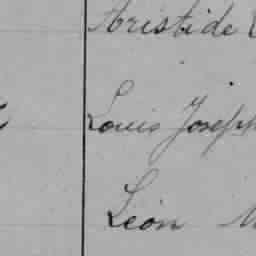 Aristide
Louis Joseph
Léon